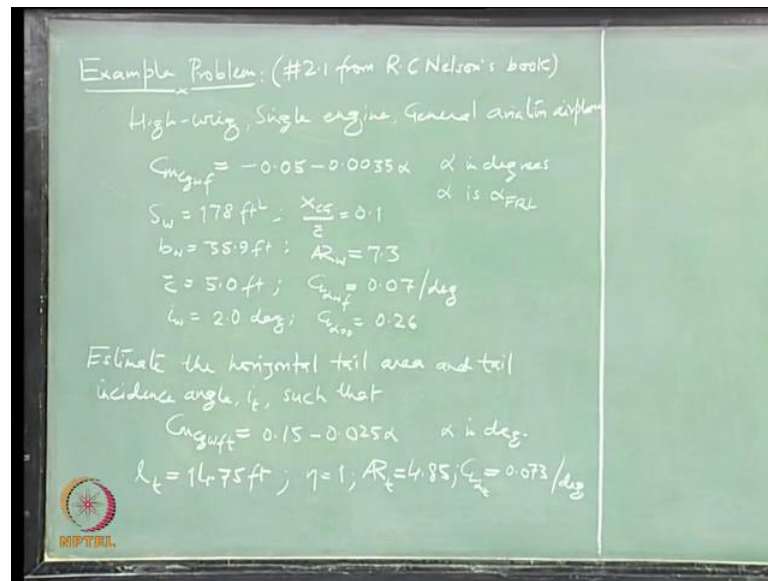 Example Problem: (#2.1 from R.C Nelson's book)
High-wing, Single engine, General aviation airplane
Cm_cg_wf = -0.05 - 0.0035α α in degrees
α is α_FRL
S_w = 178 ft²; X_cg/c̄ = 0.1
b_w = 35.9 ft; AR_w = 7.3
c̄ = 5.0 ft; C_Lα_wf = 0.07/deg
i_w = 2.0 deg; C_Lα=0 = 0.26
Estimate the horizontal tail area and tail
incidence angle, i_t, such that
Cm_cg_wft = 0.15 - 0.025α α in deg.
l_t = 14.75 ft; η = 1; AR_t = 4.85; C_Lα_t = 0.073/deg
NPTEL